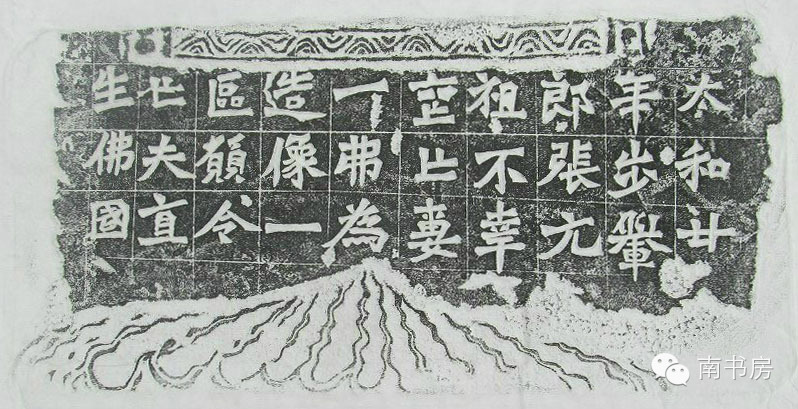 太和廿
年步轝
郎張元
祖不幸
喪亡妻
一弗為
造像一
區願令
亡夫直
生佛國
南书房